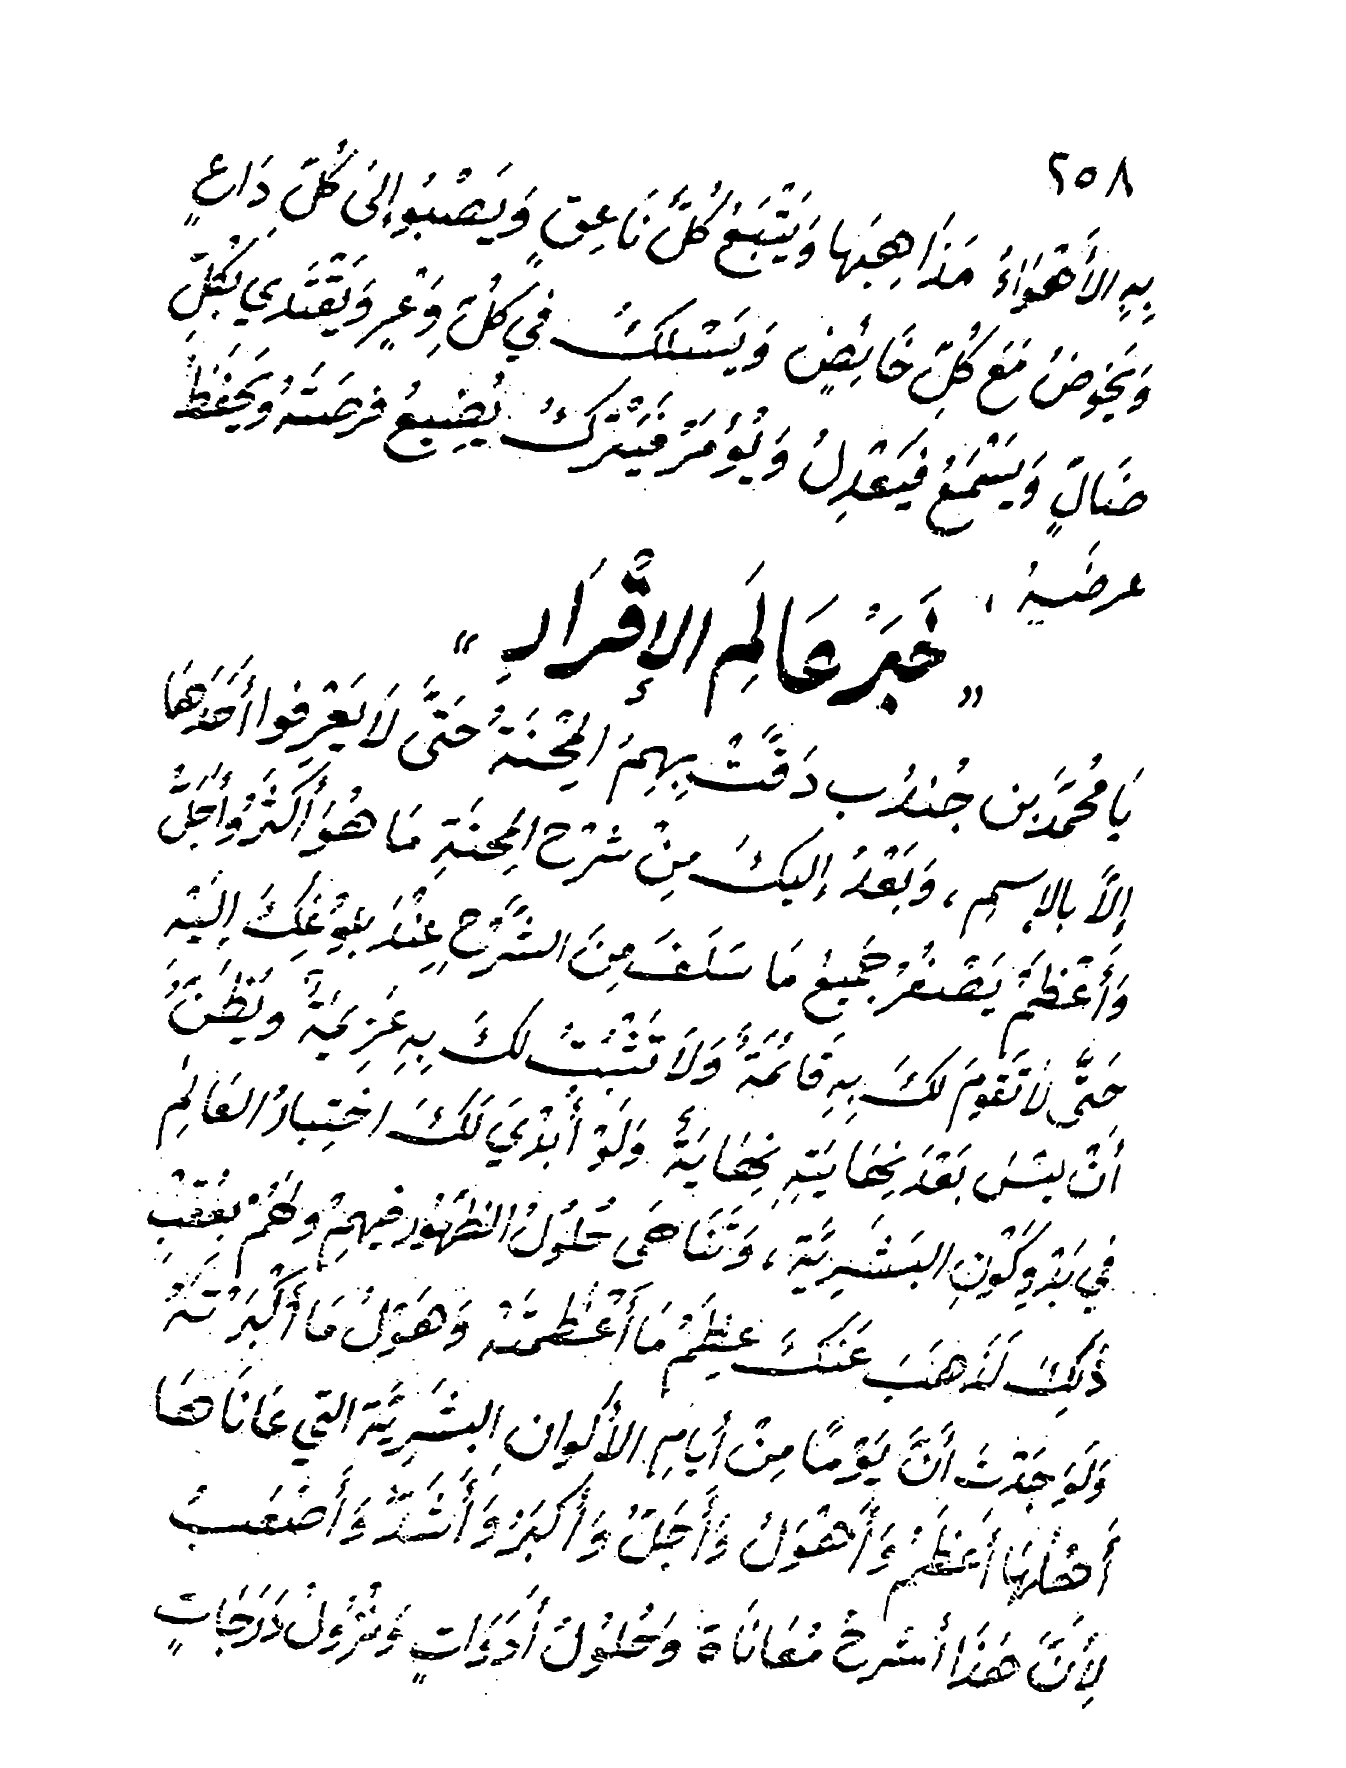 ٢٥٨
بِهِ الأَهْوَاءُ مَذَاهِبَهَا وَيَتْبَعُ كُلَّ نَاعِقٍ وَيَصْبُوا إلىَ كُلِّ دَاعٍ
وَيَخُوضُ مَعَ كُلِّ خَائِضٍ وَيَسْلكُ في كُلِّ وَعْرٍ وَيَقْتَدي بكُلِّ
ضَالٍّ وَيَسْتَمِعُ فَيَعْدِلُ وَيُؤمَرُ فَيَتْرُكُ يُضِيعُ فرصَتَهُ وَيَحْفَظُ
عرضَيهُ ،
« خَبَرُ عَالَمِ الإِقْرَارِ »
يَا مُحَمَّدَ بن جُندُب دَقَّتْ بِهِمُ المِحْنَةُ حَتَّى لَا يَعْرِفوا أَحَدَهَا
إلاَّ بالإسمِ ، وَبَعْدُ إليكَ مِنْ شَرْحِ المِحنَةِ مَا هُوَ أَكثَرُ وَأَجَلُّ
وَأَعْظَمُ يَصْغُرُ جَمِيعُ مَا سَلَفَ مِنَ الشَّرْحِ عِنْدَ بلوغِكَ إلَيْهِ
حَتَّى لاَ تَقومَ لكَ بِهِ قَائمَةٌ وَلاَ تَثْبُتُ لكَ بِهِ عَزِيمَةٌ ويَظُنُّ
أنْ ليْسَ بَعْدَ نِهَايَتِهِ نِهَايَةٌ وَلَوْ أُبْدِيَ لَكَ اختِبارُ العَالَمِ
في بَدْوِ كَوْنِ البَشَرِيَّةِ ، وَتَنَاهَى حُلُولُ الظهُورِ فيهِمْ وَلهُمْ بعَقِبِ
ذَلِكَ لَذَهَبَ عَنكَ عظِيمُ مَا أَعْظمْتَهُ وَهَوْلُ مَا أَكْبَرْتَهُ
وَلَوَجَدْتَ أَنَّ يَوْمًا مِنْ أيامِ الأكوانِ البشَرِيَّة التي عَانَاهَا
أَهْلُهَا أعظَمُ وَأَهْوَلُ وَأَجَلُّ وَأَكبَرُ وَأَشَدُّ وَأَصْعَبُ
لِأَنَّ هَذَا أشرحُ مُعَانَاة وَحُلولُ أَدَوَاتٍ وَنُزُولُ دَرَجَاتٍ